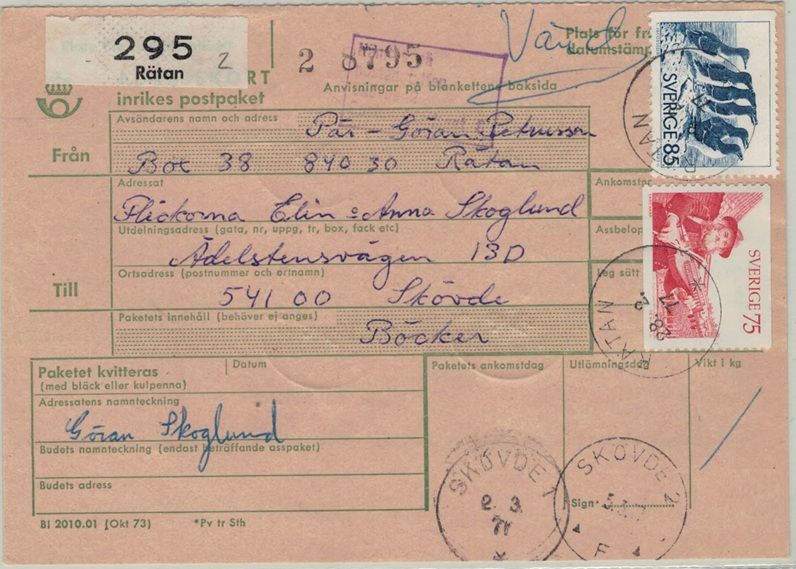 295 2
Rätan
2 8795
Vänd
Plats för
inrikes postpaket
Anvisningar på blankettens baksida
datumstämp
Från
Avsändarens namn och adress
Pär-Göran
Box 38 840 30 Rätan
Till
Adressat
Flickorna Elin o Anna Skoglund
Utdelningsadress (gata, nr, uppg, tr, box, fack etc)
Ädelstensvägen 13D
Ortsadress (postnummer och ortnamn)
541 00 Skövde
Paketets innehåll (behöver ej anges)
Böcker
Ankomstpo
Assbelop
Leg sätt
SVERIGE 85
RÄTAN
SVERIGE 75
RÄTAN
28 2
77
Paketet kvitteras
(med bläck eller kulpenna)
Datum
Adressatens namnteckning
Göran Skoglund
Budets namnteckning (endast beträffande asspaket)
Budets adress
Paketets ankomstdag
Utlämningsdag
Vikt i kg
SKÖVDE 1
2. 3.
SKÖVDE 2
F
Sign
Bl 2010.01 (Okt 73) *Pv tr Sth